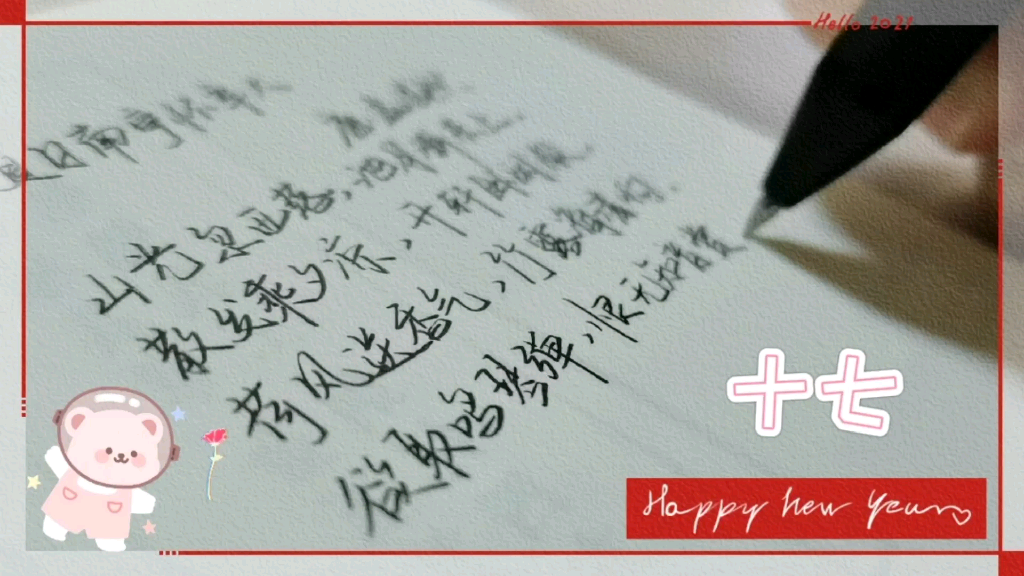 Hello 2021
夏日南亭怀辛大
山光忽西落，池月渐东上。
散发乘夕凉，开轩卧闲敞。
荷风送香气，竹露滴清响。
欲取鸣琴弹，恨无知音赏
十七
Happy New Year